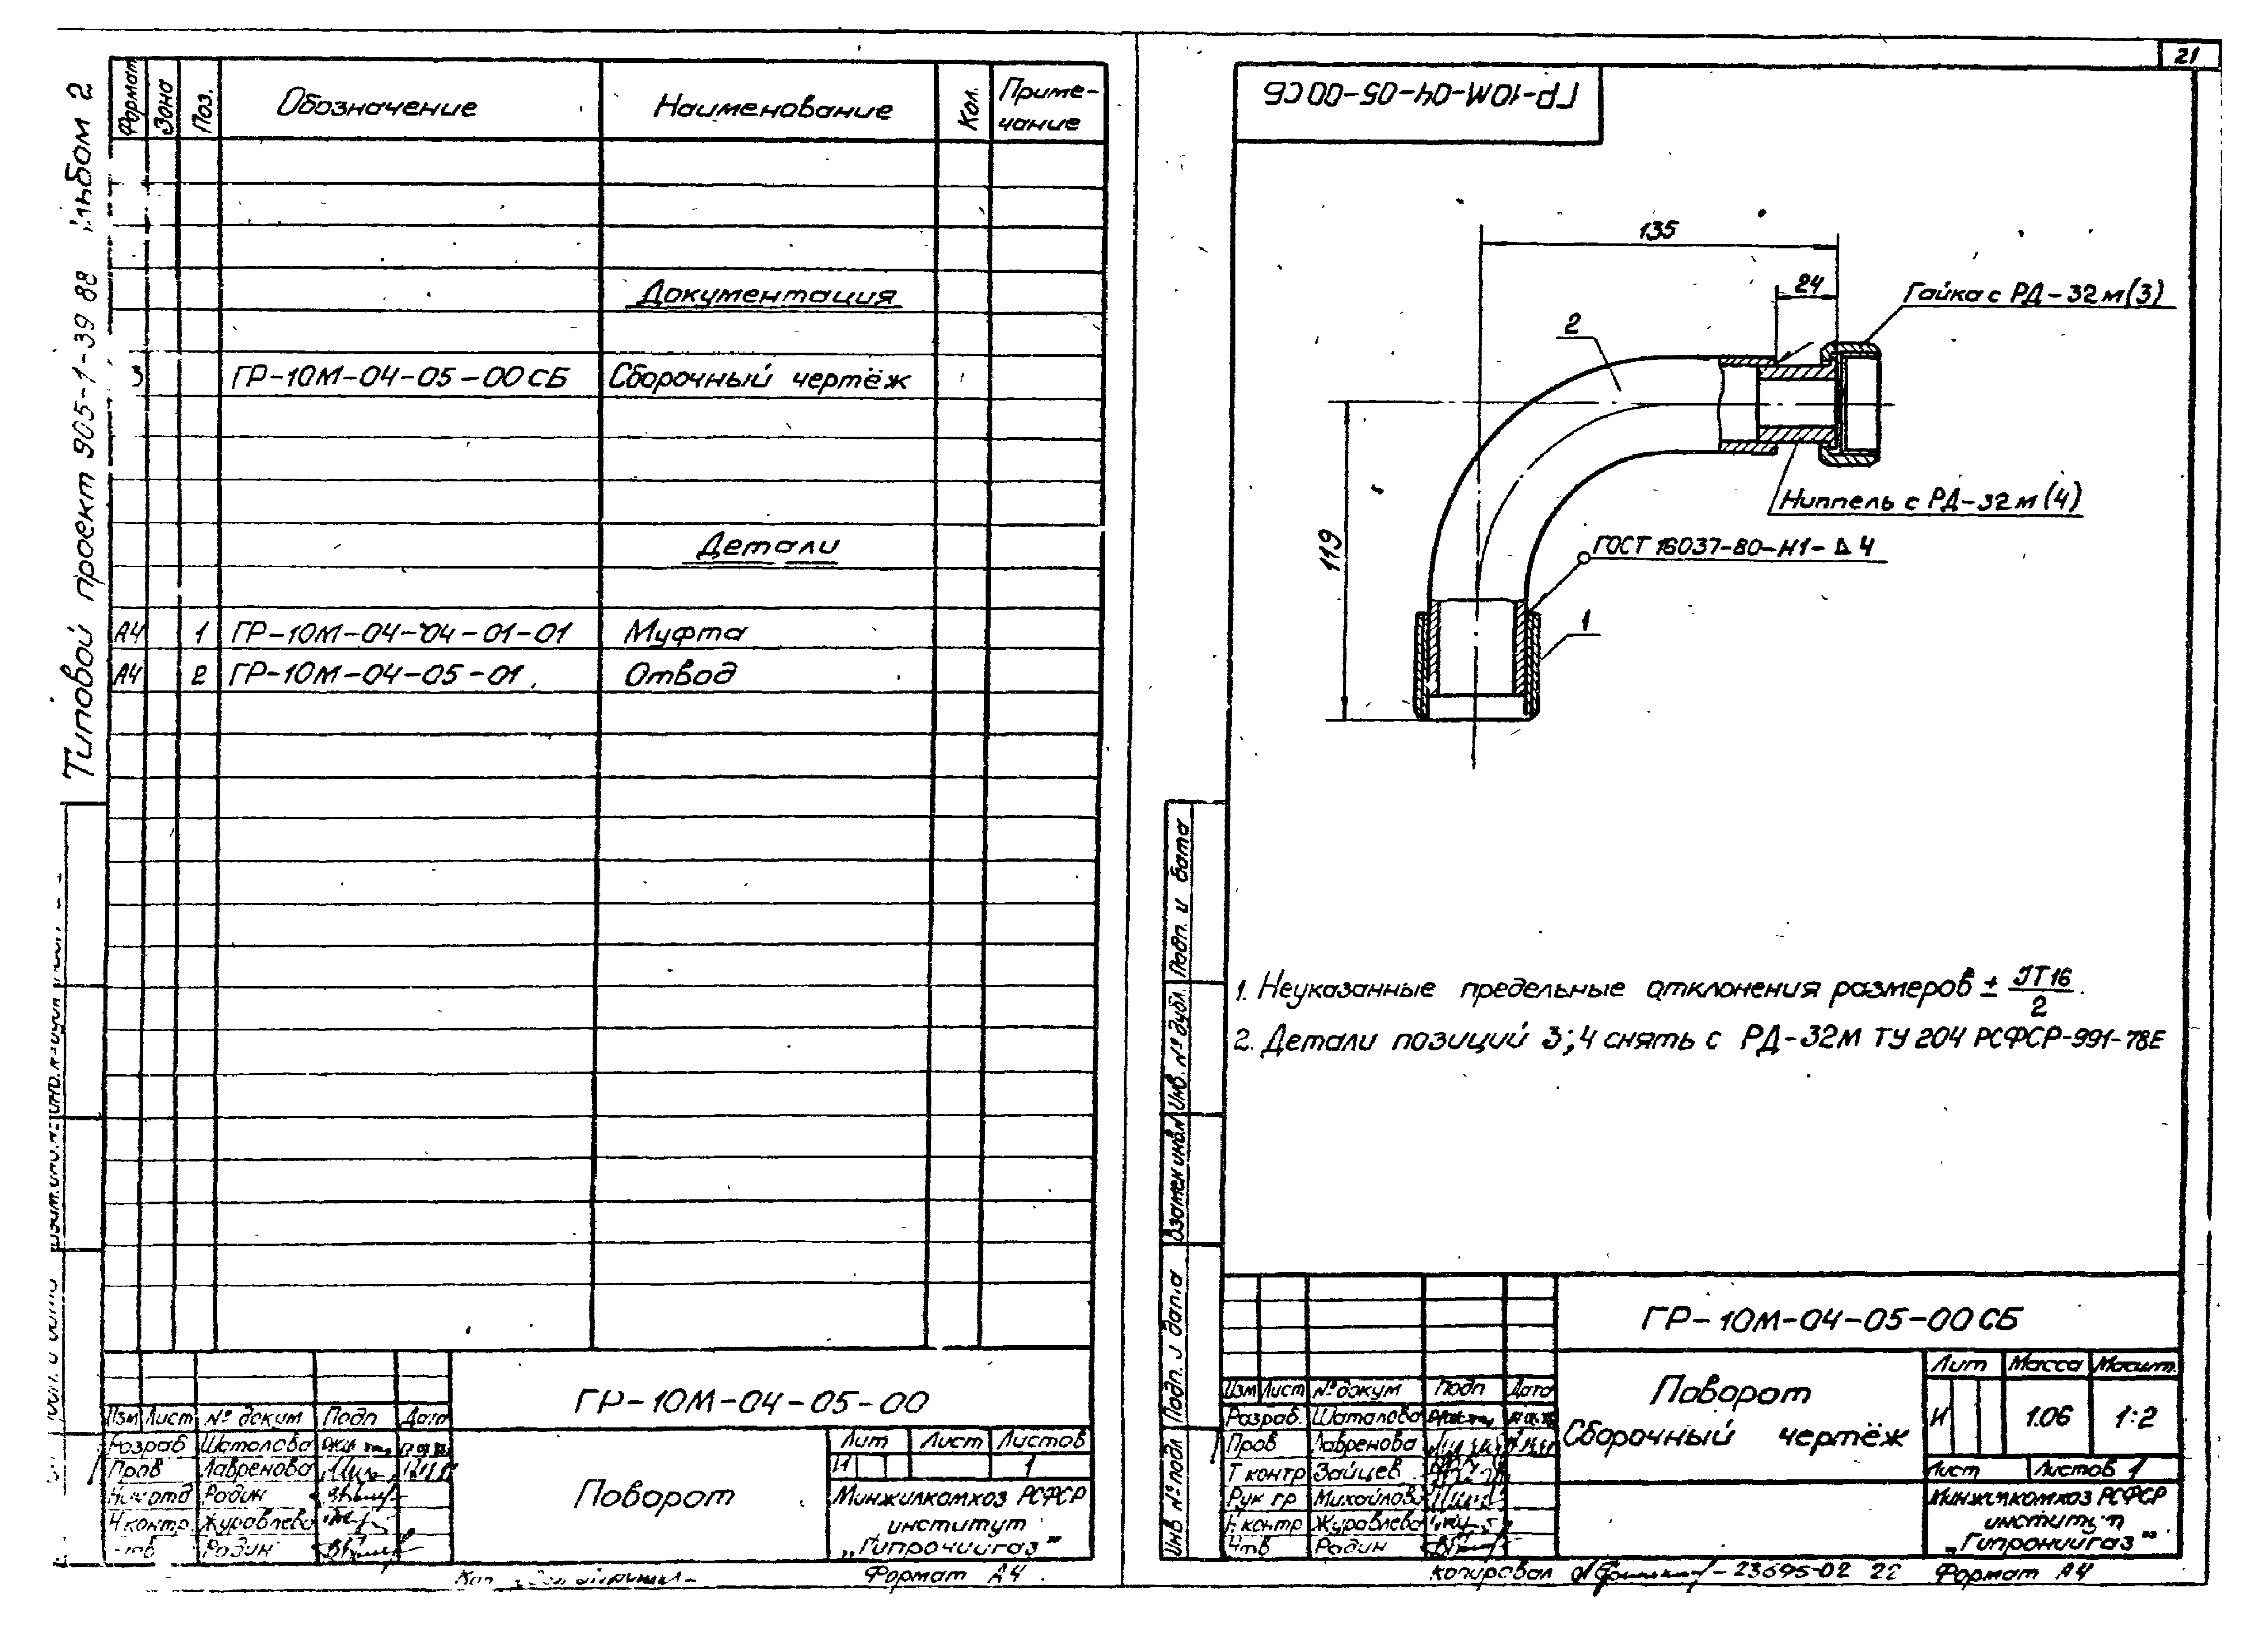 Типовой проект 905-1-39 88
Формат Зона Поз. Обозначение Наименование Кол. Приме-
чание
Документация
3 ГР-10М-04-05-00СБ Сборочный чертёж
Детали
А4 1 ГР-10М-04-04-01-01 Муфта
А4 2 ГР-10М-04-05-01 Отвод
ГР-10М-04-05-00
Изм Лист № доким Подп Дата
Разраб Шаталова
Пров Лавренова
Нач отд Радин
Н контр Журавлева
Утв Радин
Поворот
Лит Лист Листов
И 1
Минжилкомхоз РСФСР
институт
„Гипрониигаз"
Формат А4
21
ГР-10М-04-05-00СБ
135
24
Гайка с РД-32м(3)
2
119
Ниппель с РД-32м(4)
ГОСТ 16037-80-Н1-⊿4
1
1. Неуказанные предельные отклонения размеров ± JT16/2.
2. Детали позиций 3;4 снять с РД-32М ТУ 204 РСФСР-991-78Е
Подп. и дата
Инв. № дубл.
Взамен инв.№
Подп. и дата
Инв № подл
ГР-10М-04-05-00СБ
Изм Лист № докум Подп Дата
Разраб. Шаталова
Пров Лавренова
Т контр Зайцев
Рук гр Михайлова
Н контр Журавлева
Утв Радин
Поворот
Сборочный чертёж
Лит Масса Масшт.
И 1.06 1:2
Лист Листов 1
Минжилкомхоз РСФСР
институт
„Гипрониигаз"
копировал 23695-02 22 Формат А4